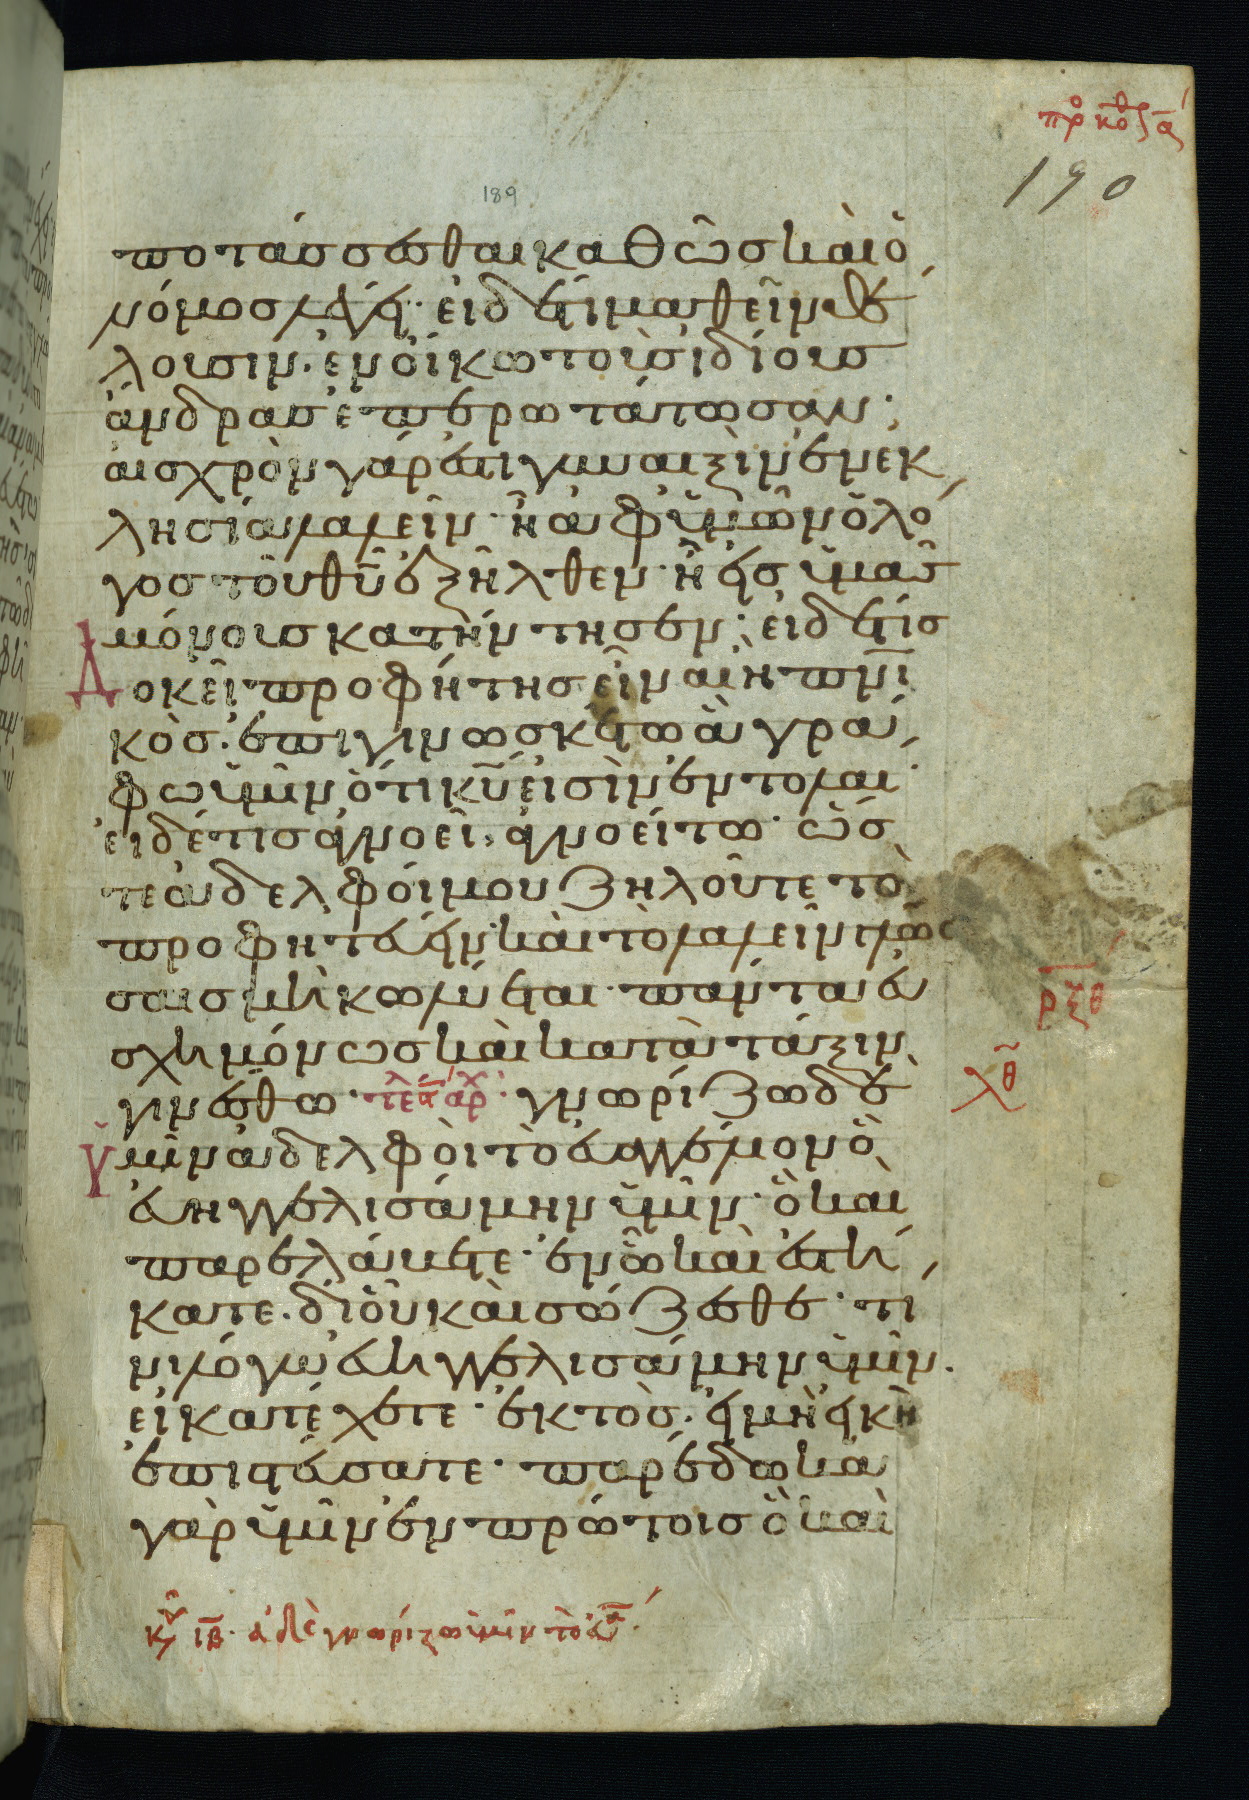 πρ κορ ᾱ
190
189
ποτάσσεσθαι καθὼς καὶ ὁ
νόμος λέγει· εἰ δέ τι μαθεῖν θέ
λουσιν· ἐν οἴκω τοὺς ἰδίους
ἄνδρας ἐπερωτάτωσαν·
αἰσχρὸν γάρ ἐστι γυναιξὶν ἐν ἐκ
λησία λαλεῖν· ἢ ἀφ' ὑμῶν ὁ λό
γος τοῦ θῡ ἐξῆλθεν· ἢ εἰς ὑμᾶς
μόνους κατήντησεν· εἰ δέ τις
Δοκεῖ προφήτης εἶναι ἢ πνῑ
κὸς· ἐπιγινωσκέτω ἃ γρά
φω ὑμῖν ὅτι κῡ εἰσὶν ἐντολαι·
εἰ δέ τις ἀγνοεῖ, ἀγνοείτω· ὥσ
τε ἀδελφοί μου ζηλοῦτε τὸ
προφητεύειν· καὶ τὸ λαλεῖν γλώσ
σαις μὴ κωλύεται· πάντα εὐ
σχημόνως καὶ κατὰ τάξιν
γινέσθω· τελ ᾱ αρχ· γνωρίζω δὲ
Ὑμῖν ἀδελφοὶ τὸ εὐαγγέλιον ὃ
εὐηγγελισάμην ὑμῖν· ὃ καὶ
παρελάβετε· ἐν ὧ καὶ ἑστή
κατε· δι' οὗ καὶ σώζεσθε· τί
νι λόγω εὐηγγελισάμην ὑμῖν·
εἰ κατέχετε· ἐκτὸς· εἰ μὴ εἰκῆ
ἐπιστεύσατε· παρέδωκα
γὰρ ὑμῖν ἐν πρώτοις ὃ καὶ
ρξθ
λθ
κυ ιβ· ἀδε γνωρίζω ὑμῖν τὸ εὐα